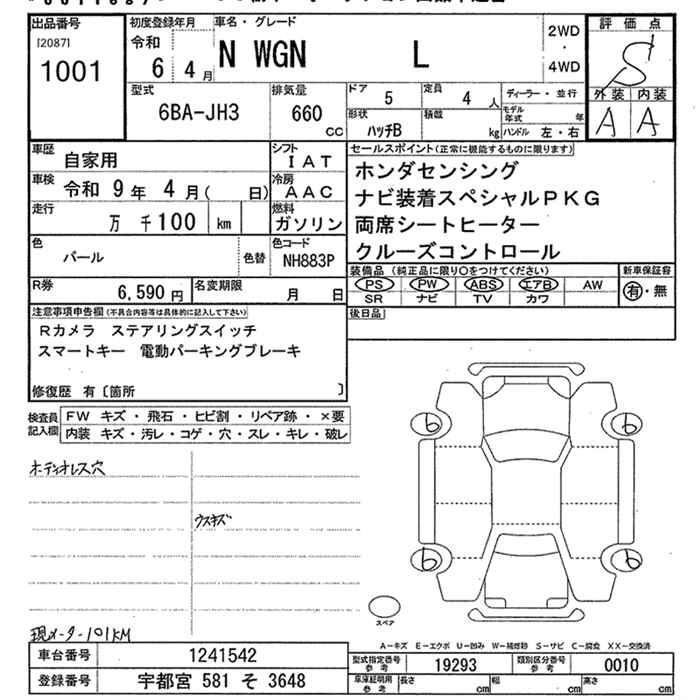 出品番号
[2087]
1001
初度登録年月
令和
6 4 月
車名・グレード
N WGN L
2WD
・
4WD
評価点
S
外装 内装
A A
型式
6BA-JH3
排気量
660
CC
ドア
5
定員
4 人
ディーラー・並行
モデル年式 年
形状
ハッチB
積載
kg
ハンドル 左・右
車歴
自家用
シフト
IAT
車検
令和 9 年 4 月( 日)
冷房
AAC
走行
万 千100 km
燃料
ガソリン
色
パール
色替
色コード
NH883P
R券
6,590 円
名変期限
月 日
セールスポイント(正常に機能するものに限ります)
ホンダセンシング
ナビ装着スペシャルPKG
両席シートヒーター
クルーズコントロール
装備品(純正品に限り○をつけてください)
新車保証書
PS PW ABS エアB AW
SR ナビ TV カワ
有・無
後日品
注意事項申告欄(不具合内容等は具体的に記入して下さい)
Rカメラ ステアリングスイッチ
スマートキー 電動パーキングブレーキ
修復歴 有〔箇所 〕
検査員記入欄
FW キズ・飛石・ヒビ割・リペア跡・×要
内装 キズ・汚レ・コゲ・穴・スレ・キレ・破レ
ホディオレス穴
ウスキズ
現メーター101KM
6 6
6 6
スペア
A-キズ E-エクボ U-凹み W-補修跡 S-サビ C-腐食 XX-交換済
車台番号
1241542
登録番号
宇都宮 581 そ 3648
型式指定番号
参考
19293
類別区分番号
参考
0010
車庫証明用
参考
長さ cm
幅 cm
高さ cm